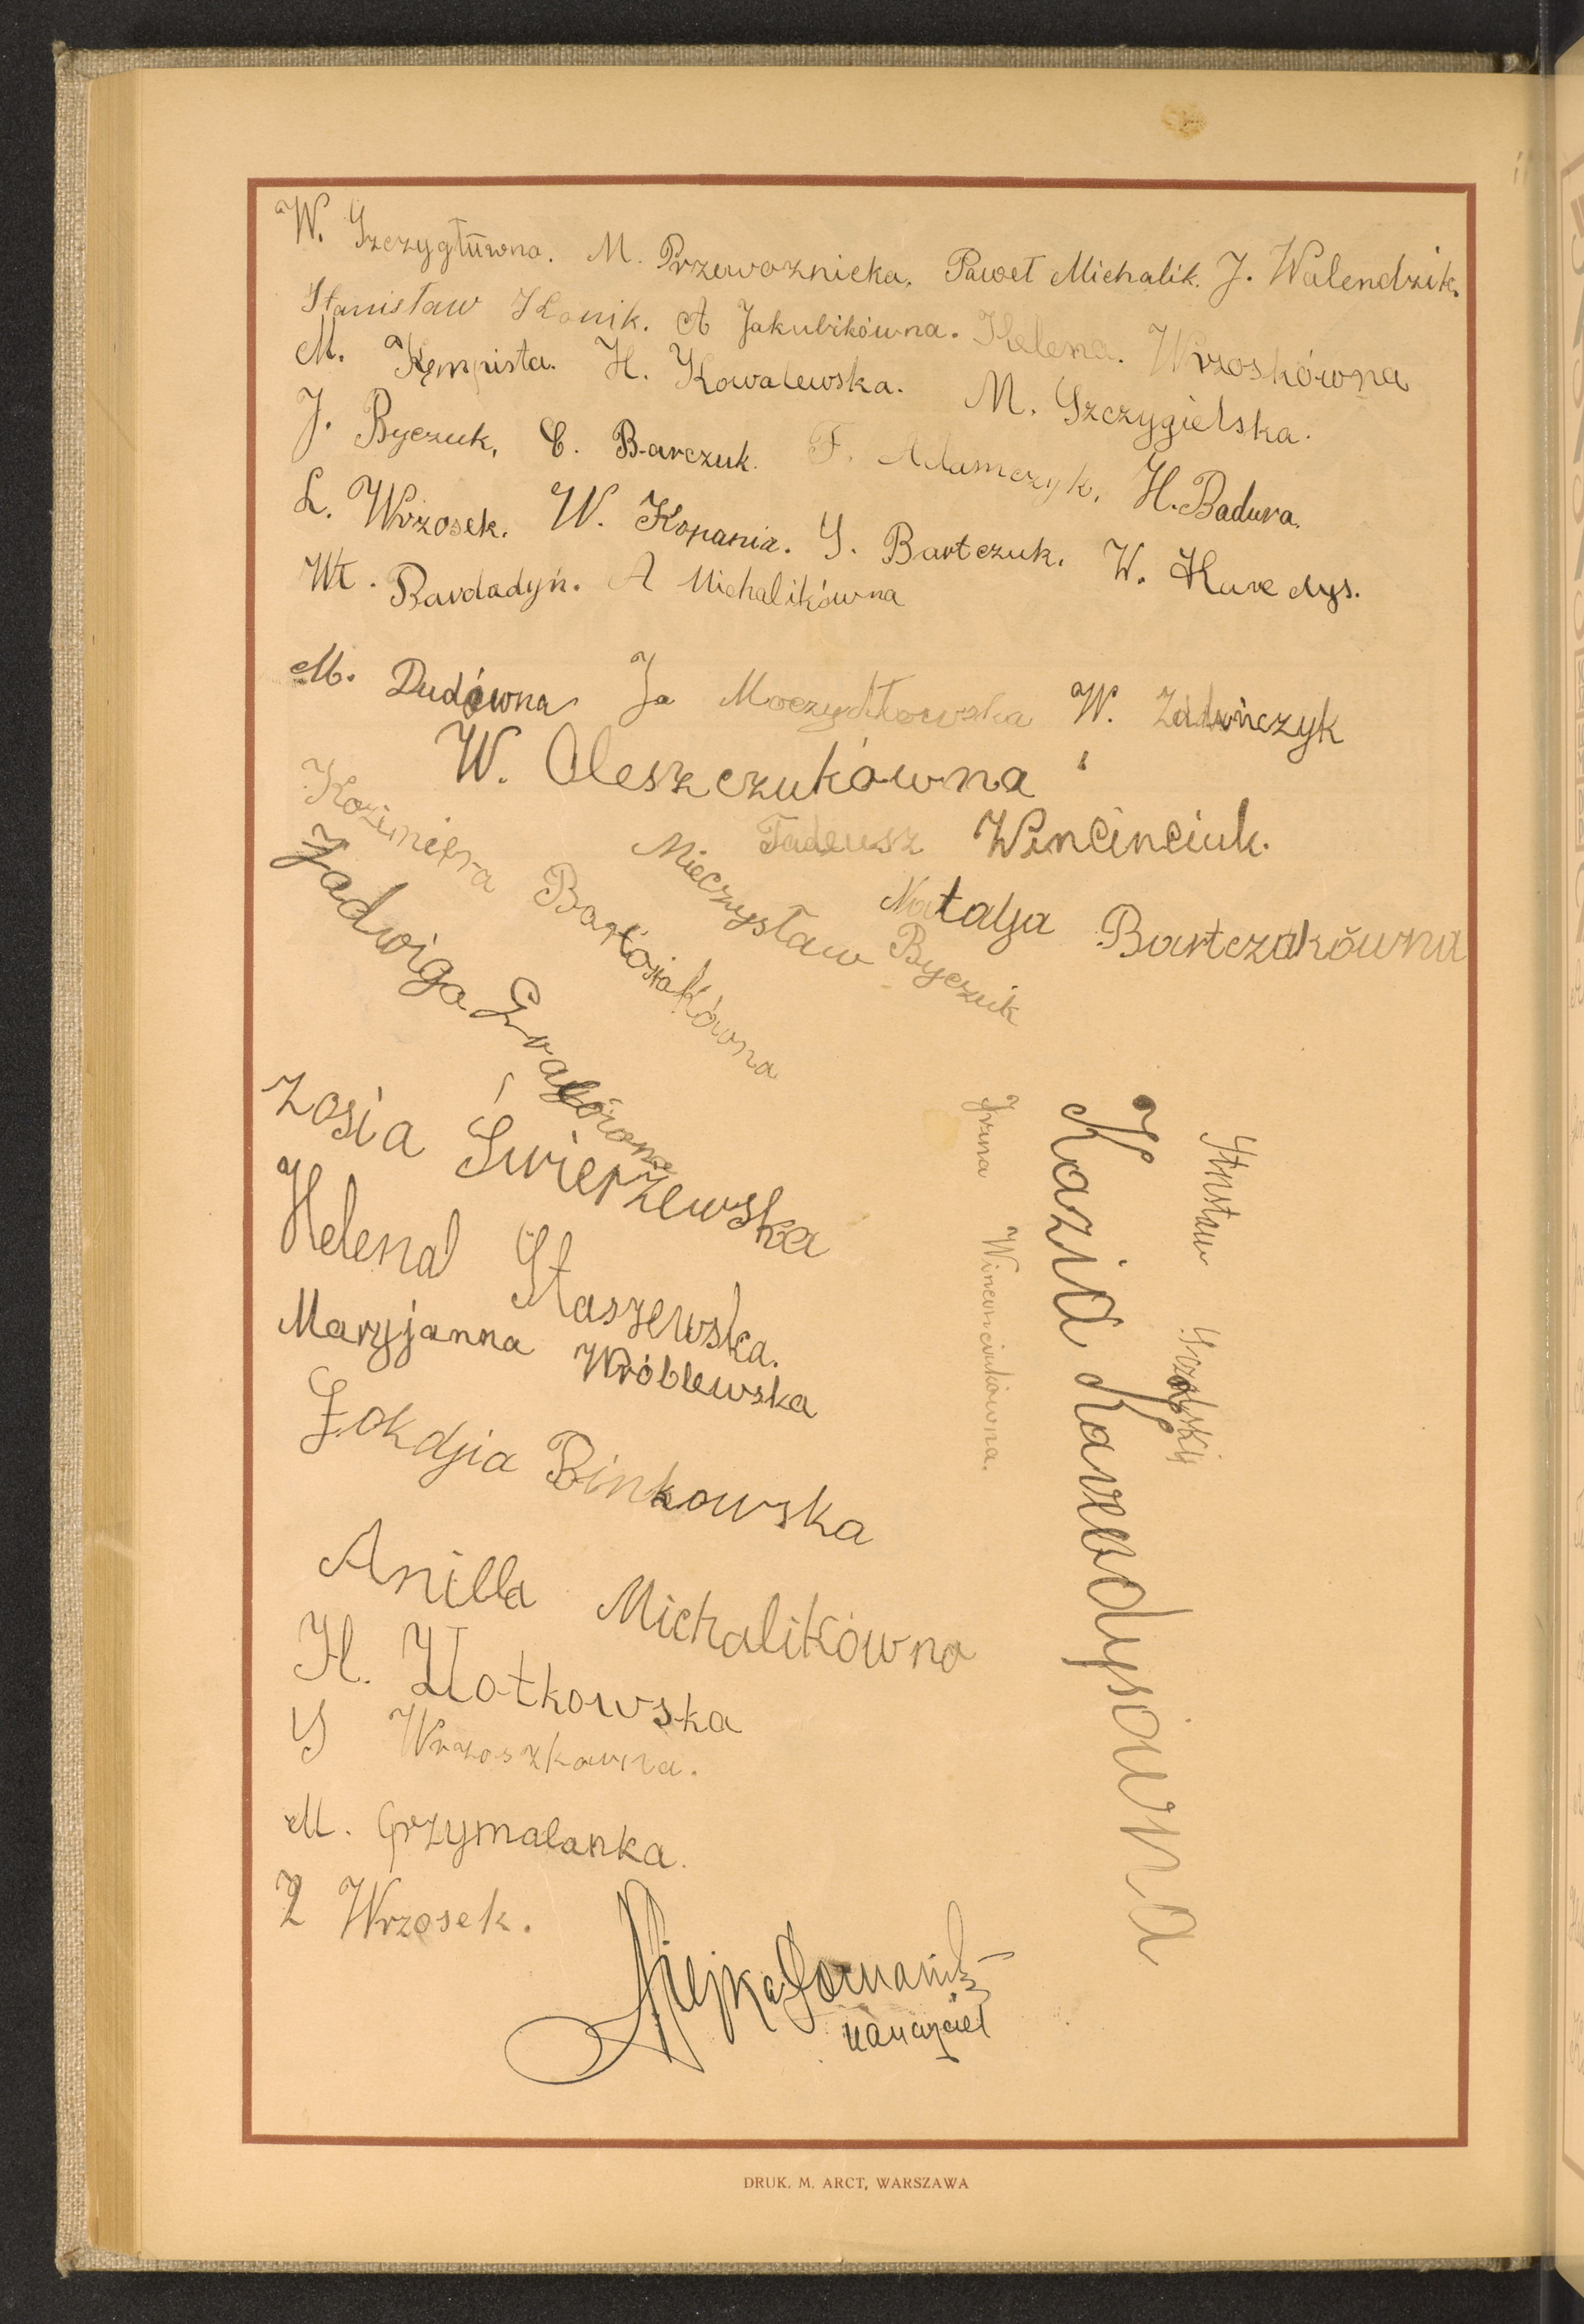 W. Szczygłówna. M. Przewoznicka. Paweł Michalik. J. Walendzik.
Stanisław Konik. A Jakubikówna. Helena. Wrzoskówna
M. Kempista. H. Kowalewska. M. Szczygielska.
J. Byczuk, C. Barczuk. F. Adamczyk, H. Badura.
L. Wrzosek. W. Kopania. S. Bartczuk. W. Karedys.
Wł. Bardadyń. A Michalikówna
M. Dudówna Ja Moczydłowska W. Zaduńczyk
W. Oleszczukówna
Tadeusz Wincinciuk.
Natalja Bartczakówna
Mieczysław Byczuk
Kazimiera Bartosiakówna
Jadwiga
Zosia Świerzewska
Helena Staszewska.
Maryjanna Wróblewska
Binkowska
Aniela Michalikówna
H. Złotkowska
S Wrzoszkówna.
M. Grzymalanka.
Z Wrzosek.
Irena Wincenciukówna.
Kazia Karedysiówna
Stnsław
nauczyciel
DRUK. M. ARCT, WARSZAWA